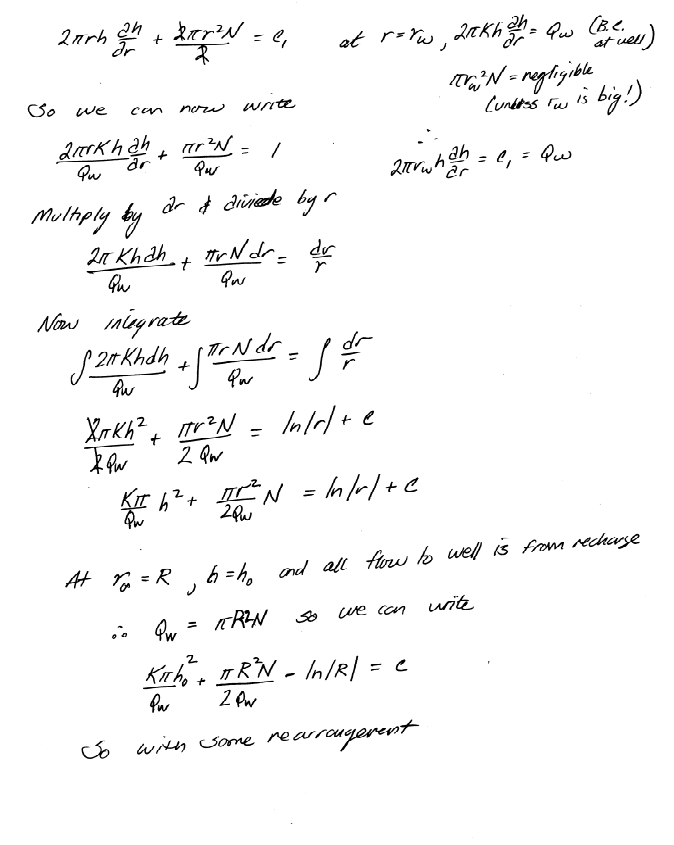 2πrh ∂h/∂r + 2πr²N/2 = c₁ at r=r_w, 2πKh ∂h/∂r = Q_w (B.C. at well)
πr_w²N = negligible (unless r_w is big!)
So we can now write
2πrKh/Q_w ∂h/∂r + πr²N/Q_w = 1 ∴ 2πr_w h ∂h/∂r = c₁ = Q_w
Multiply by dr & divide by r
2πKhdh/Q_w + πrNdr/Q_w = dr/r
Now integrate
∫ 2πKhdh/Q_w + ∫ πrNdr/Q_w = ∫ dr/r
2πKh²/2Q_w + πr²N/2Q_w = ln|r| + c
Kπ/Q_w h² + πr²/2Q_w N = ln|r| + c
At r₀ = R, h=h₀ and all flow to well is from recharge
∴ Q_w = πR²N so we can write
Kπh₀²/Q_w + πR²N/2Q_w - ln|R| = c
So with some rearrangement